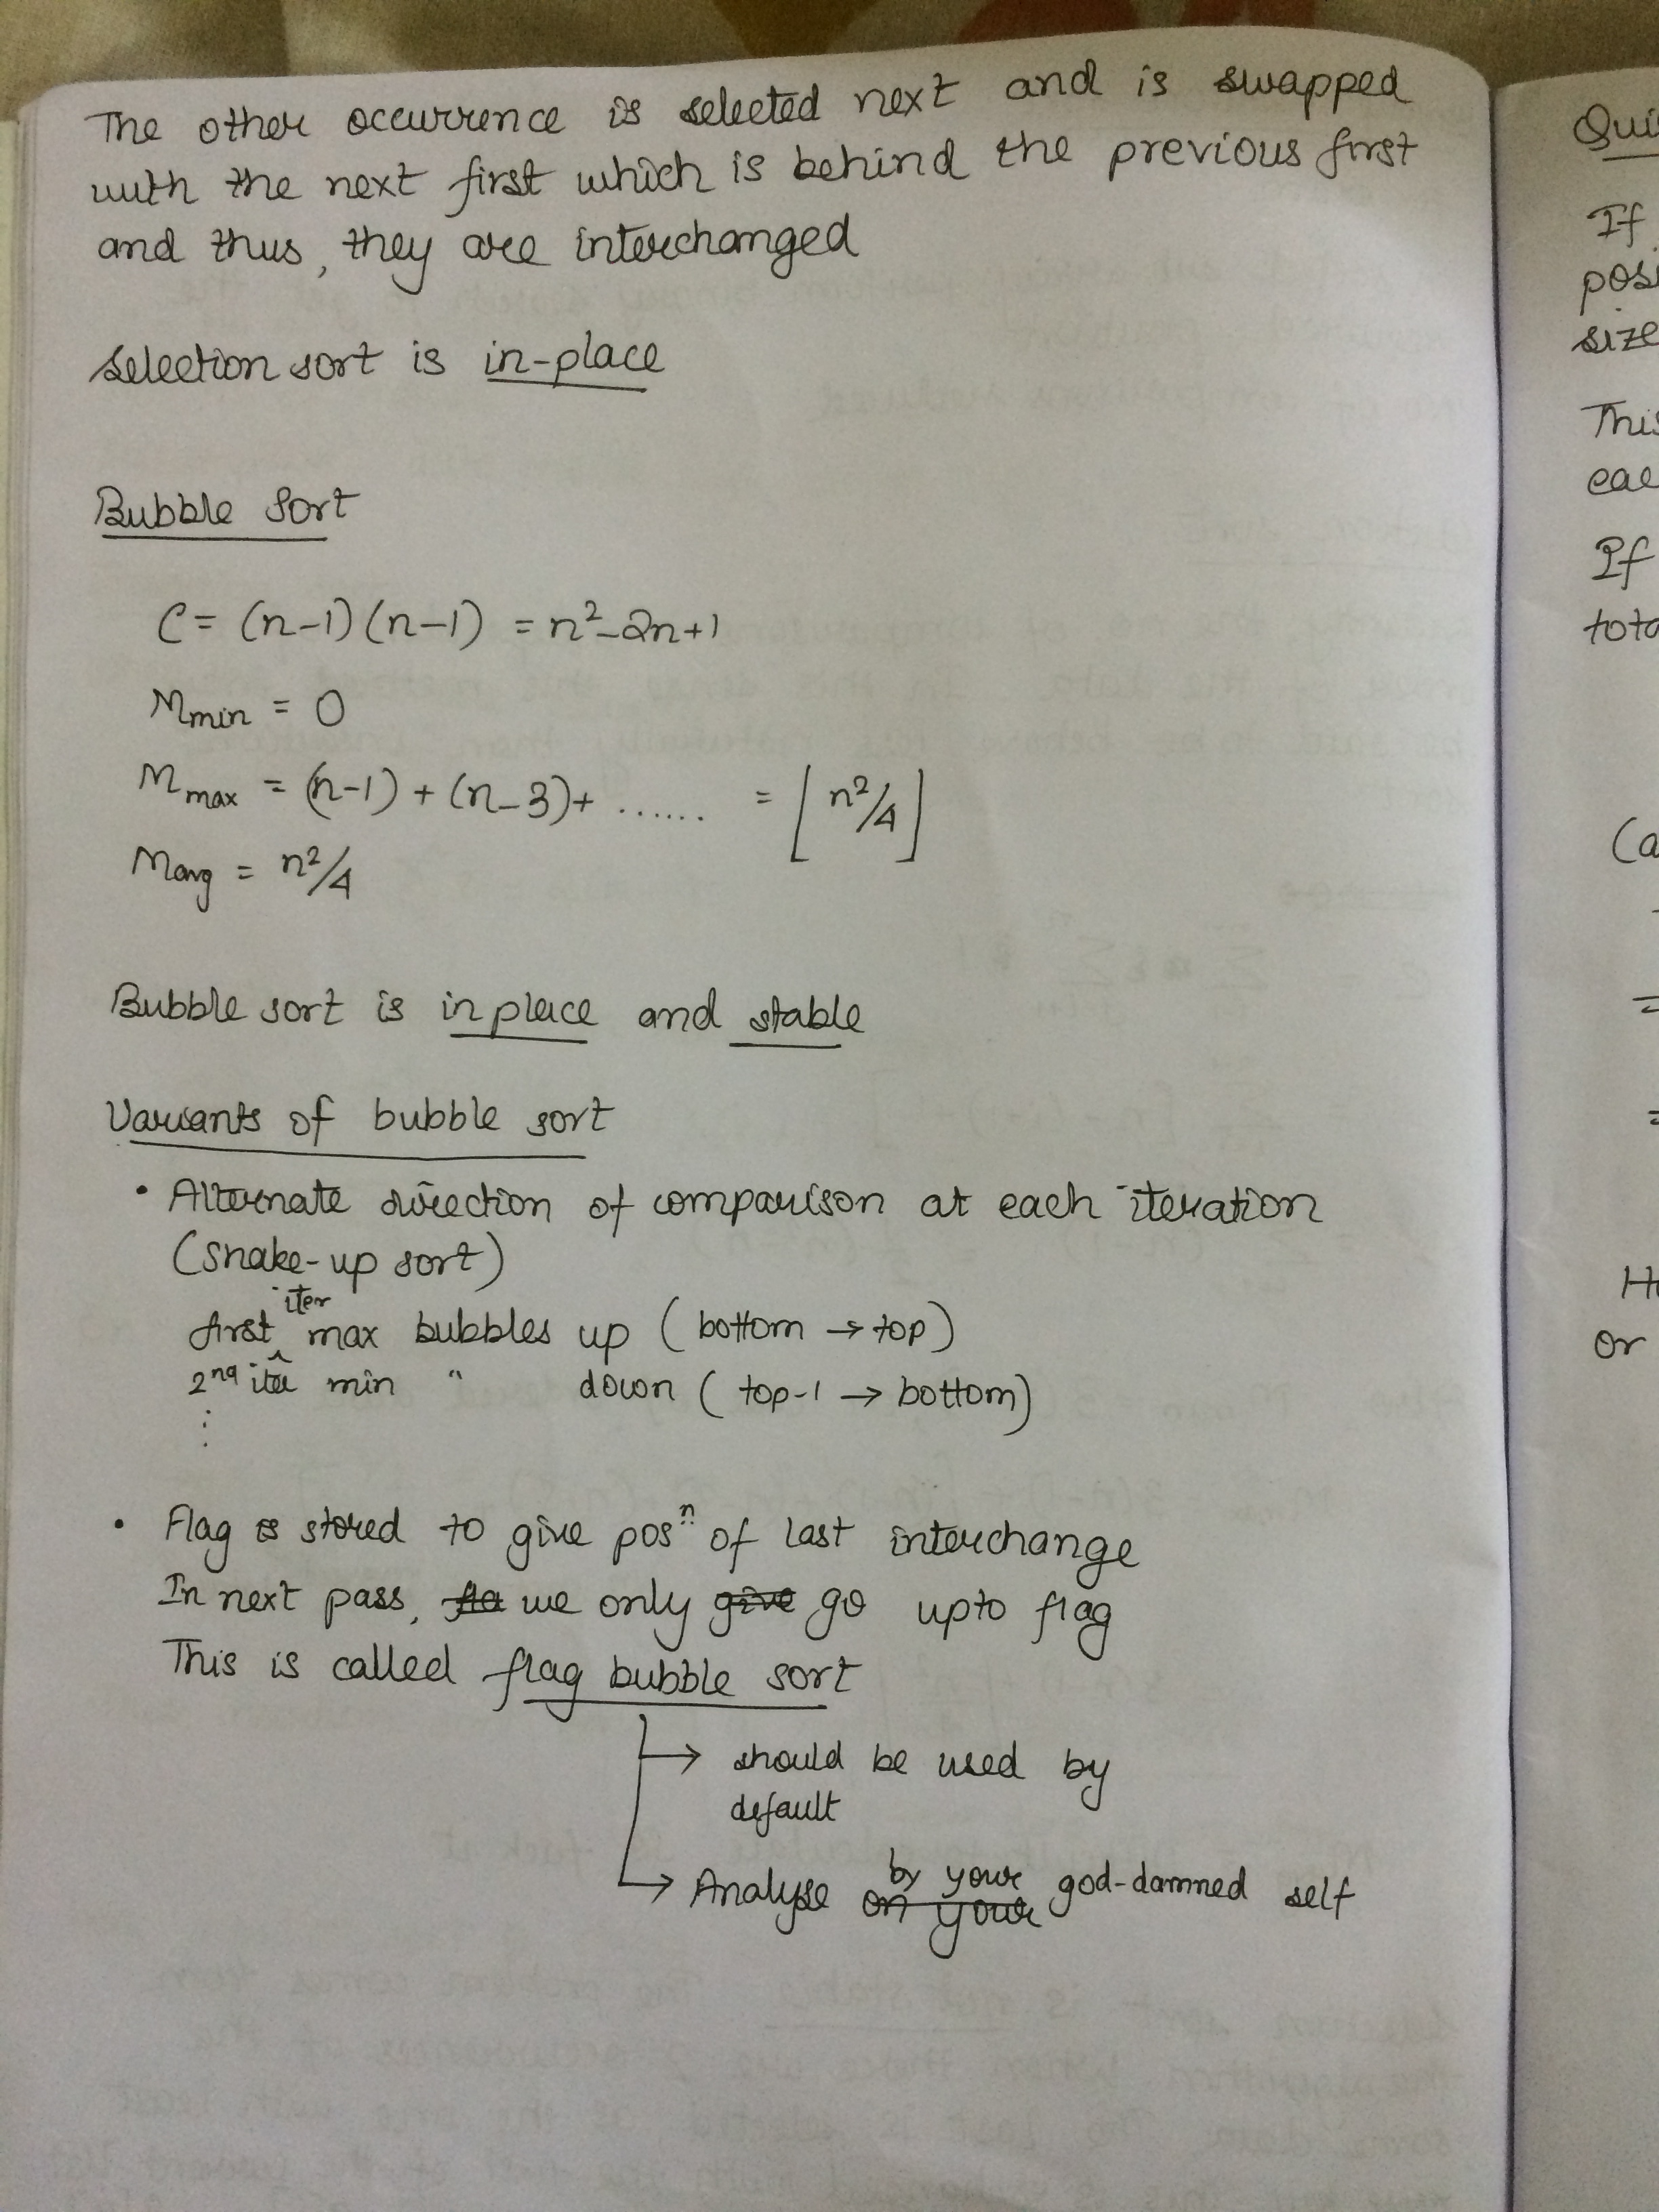 The other occurrence is selected next and is swapped
with the next first which is behind the previous first
and thus, they are interchanged
Selection sort is in-place
Bubble Sort
C = (n-1)(n-1) = n²-2n+1
Mmin = 0
Mmax = (n-1) + (n-3)+ ...... = ⌊n²/4⌋
Mavg = n²/4
Bubble sort is in place and stable
Variants of bubble sort
• Alternate direction of comparison at each iteration
(snake-up sort)
first iter max bubbles up (bottom → top)
2nd iter min " down (top-1 → bottom)
⋮
• Flag is stored to give posⁿ of last interchange
In next pass, fla we only give go upto flag
This is called flag bubble sort
→ should be used by
default
→ Analyse on your by your god-damned self
Qui
If
posi
size
This
eac
If
tota
(a
=
=
or